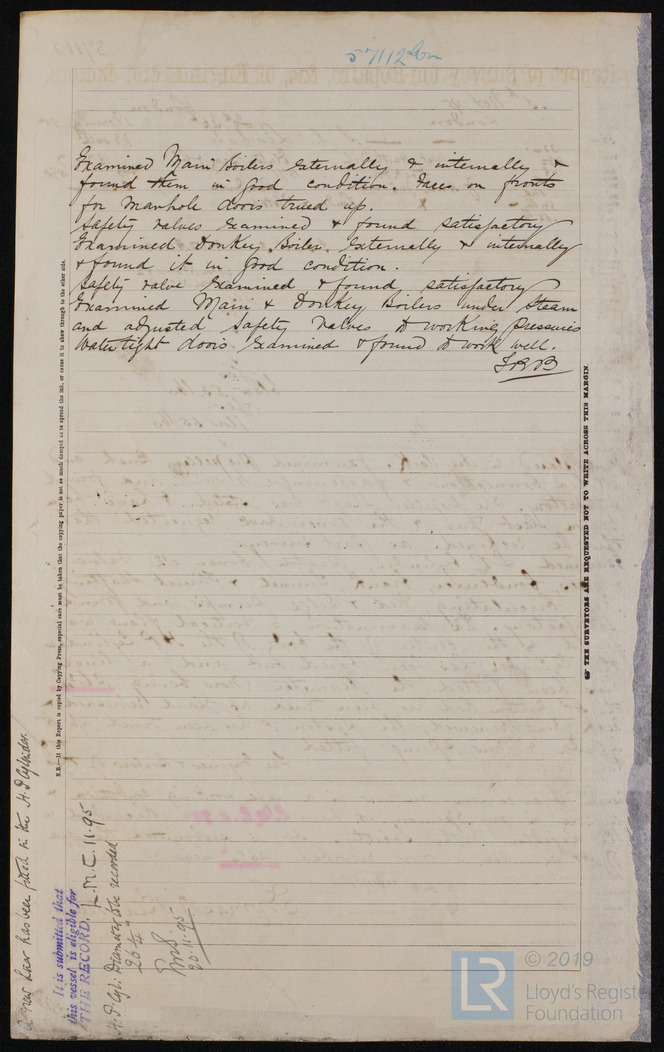 57112 Lon
Examined Main Boilers externally & internally &
found them in good condition. Faces on fronts
for Manhole doors trued up.
Safety valves examined & found satisfactory
Examined Donkey Boiler Externally & internally
& found it in good condition.
Safety valve examined & found satisfactory
Examined Main & Donkey Boilers under steam
and adjusted Safety Valves to working pressures
Watertight doors examined & found to work well.
N.B.—If this Report is copied by Copying Press, especial care must be taken that the copying paper is not so much damped as to spread the ink, or cause it to show through to the other side.
OF THE SURVEYORS ARE REQUESTED NOT TO WRITE ACROSS THIS MARGIN.
A new liner has been fitted in the H.P. Cylinder.
It is submitted that
this vessel is eligible for
THE RECORD. L.M.C. 11.95
H.P. Cyl: Diameter to be recorded
26 1/4"
20.11.95
© 2019
Lloyd's Register
Foundation
LR